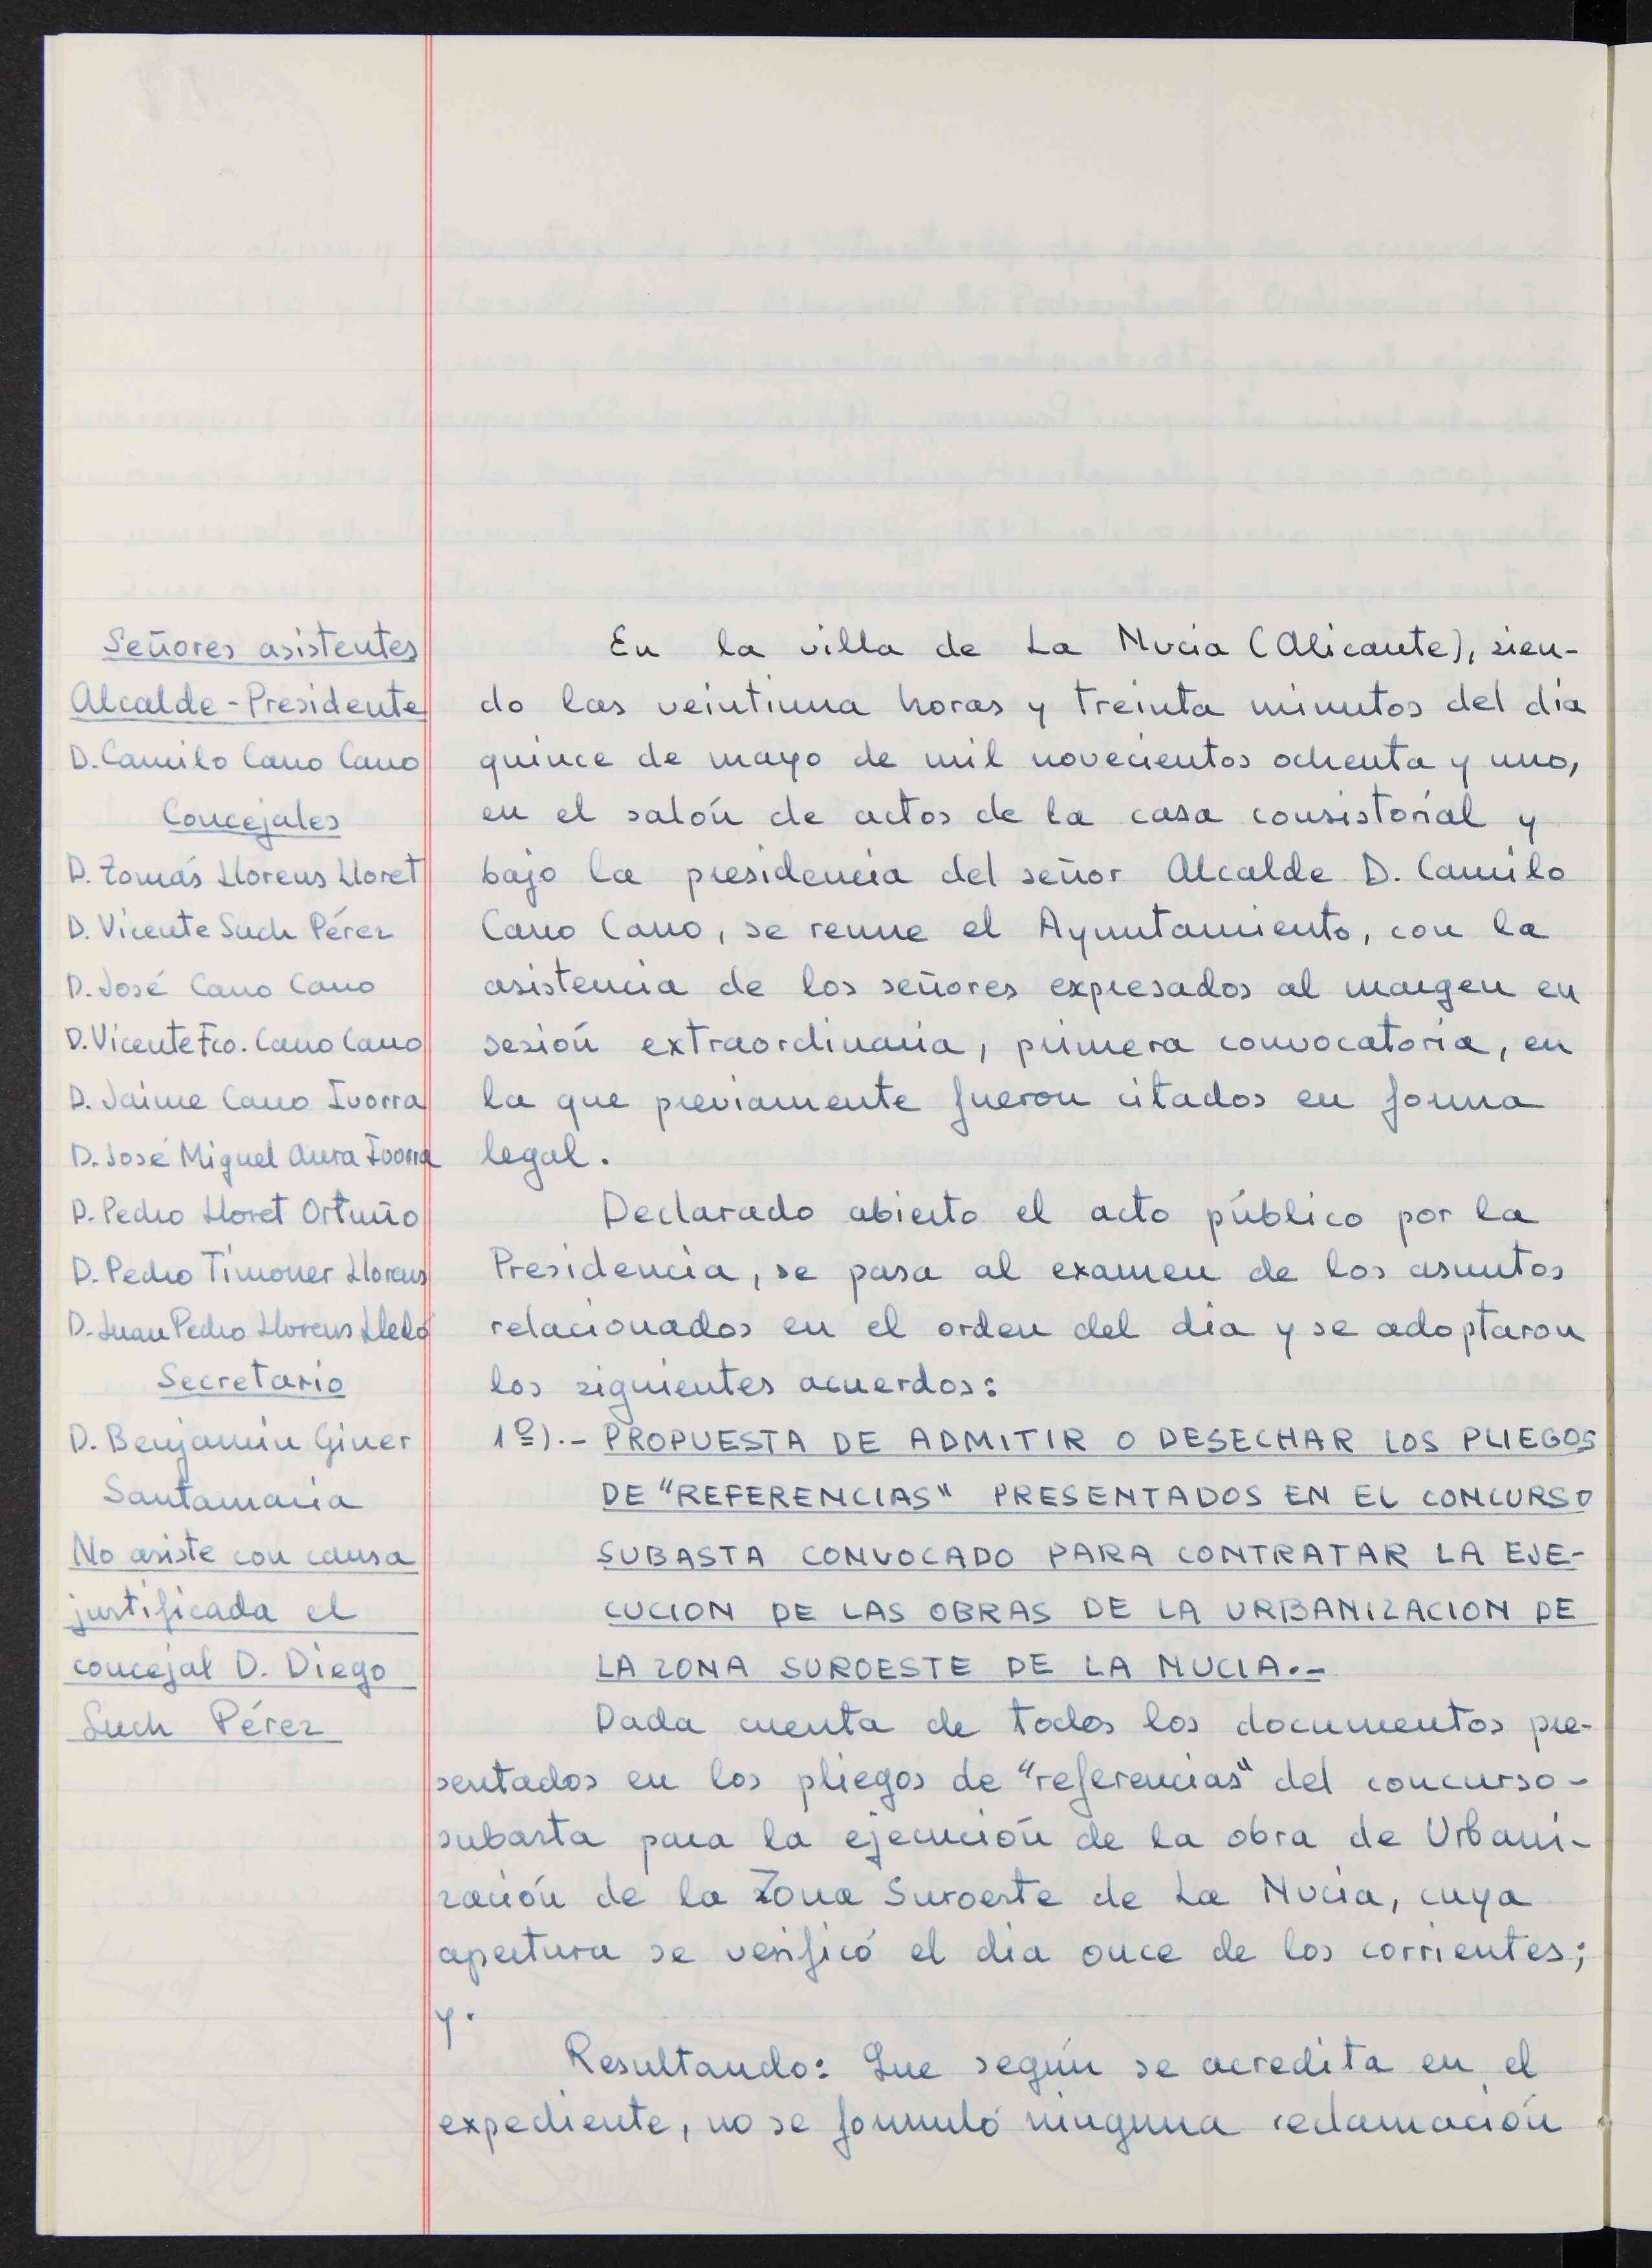 Señores asistentes
Alcalde-Presidente
D. Camilo Cano Cano
Concejales
D. Tomás Llorens Lloret
D. Vicente Such Pérez
D. José Cano Cano
D. Vicente Fco. Cano Cano
D. Jaime Cano Ivorra
D. José Miguel Aura Ivorra
D. Pedro Lloret Ortuño
D. Pedro Timoner Llorens
D. Juan Pedro Llorens Lledó
Secretario
D. Benjamín Giner
Santamaria
No asiste con causa
justificada el
concejal D. Diego
Such Pérez
En la villa de La Nucia (Alicante), sien-
do las veintiuna horas y treinta minutos del día
quince de mayo de mil novecientos ochenta y uno,
en el salón de actos de la casa consistorial y
bajo la presidencia del señor Alcalde D. Camilo
Cano Cano, se reune el Ayuntamiento, con la
asistencia de los señores expresados al margen en
sesión extraordinaria, primera convocatoria, en
la que previamente fueron citados en forma
legal.
Declarado abierto el acto público por la
Presidencia, se pasa al examen de los asuntos
relacionados en el orden del dia y se adoptaron
los siguientes acuerdos:
1º).- PROPUESTA DE ADMITIR O DESECHAR LOS PLIEGOS
DE "REFERENCIAS" PRESENTADOS EN EL CONCURSO
SUBASTA CONVOCADO PARA CONTRATAR LA EJE-
CUCION DE LAS OBRAS DE LA URBANIZACION DE
LA ZONA SUROESTE DE LA NUCIA.-
Dada cuenta de todos los documentos pre-
sentados en los pliegos de "referencias" del concurso-
subasta para la ejecución de la obra de Urbani-
zación de la Zona Suroeste de La Nucia, cuya
apertura se verificó el dia once de los corrientes;
y.
Resultando: Que según se acredita en el
expediente, no se formuló ninguna reclamación